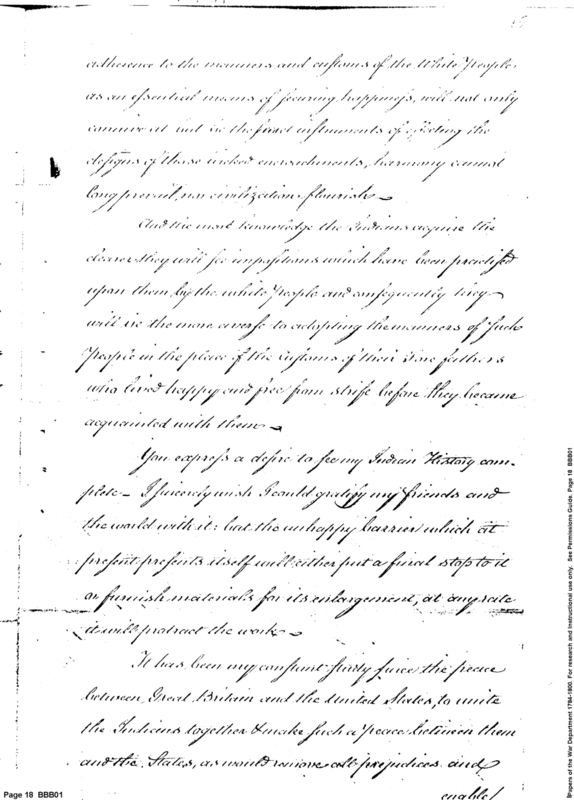 adherence to the manners and customs of the White People
as an essential means of securing happiness, will not only
connive at but be the first instruments of effecting the
designs of those wicked encroachments, harmony cannot
long prevail, nor civilization flourish
And the more knowledge the Indians acquire the
clearer they will see impositions which have been practised
upon them by the white People and consequently they
will be the more averse to adopting the manners of such
People in the place of the customs of their fore fathers
who lived happy and free from strife before they became
acquainted with them
You express a desire to see my Indian History com-
plete - I sincerely wish I could gratify my friends and
the world with it: but the unhappy barrier which at
present presents itself will either put a final stop to it
or furnish materials for its enlargement, at any rate
it will protract the work
It has been my constant study since the peace
between Great Britain and the United States, to unite
the Indians together & make such a peace between them
and the States, as would remove all prejudices and
enable
Page 18 BBB01
Papers of the War Department 1784-1800. For research and instructional use only. See Permissions Guide. Page 18 BBB01